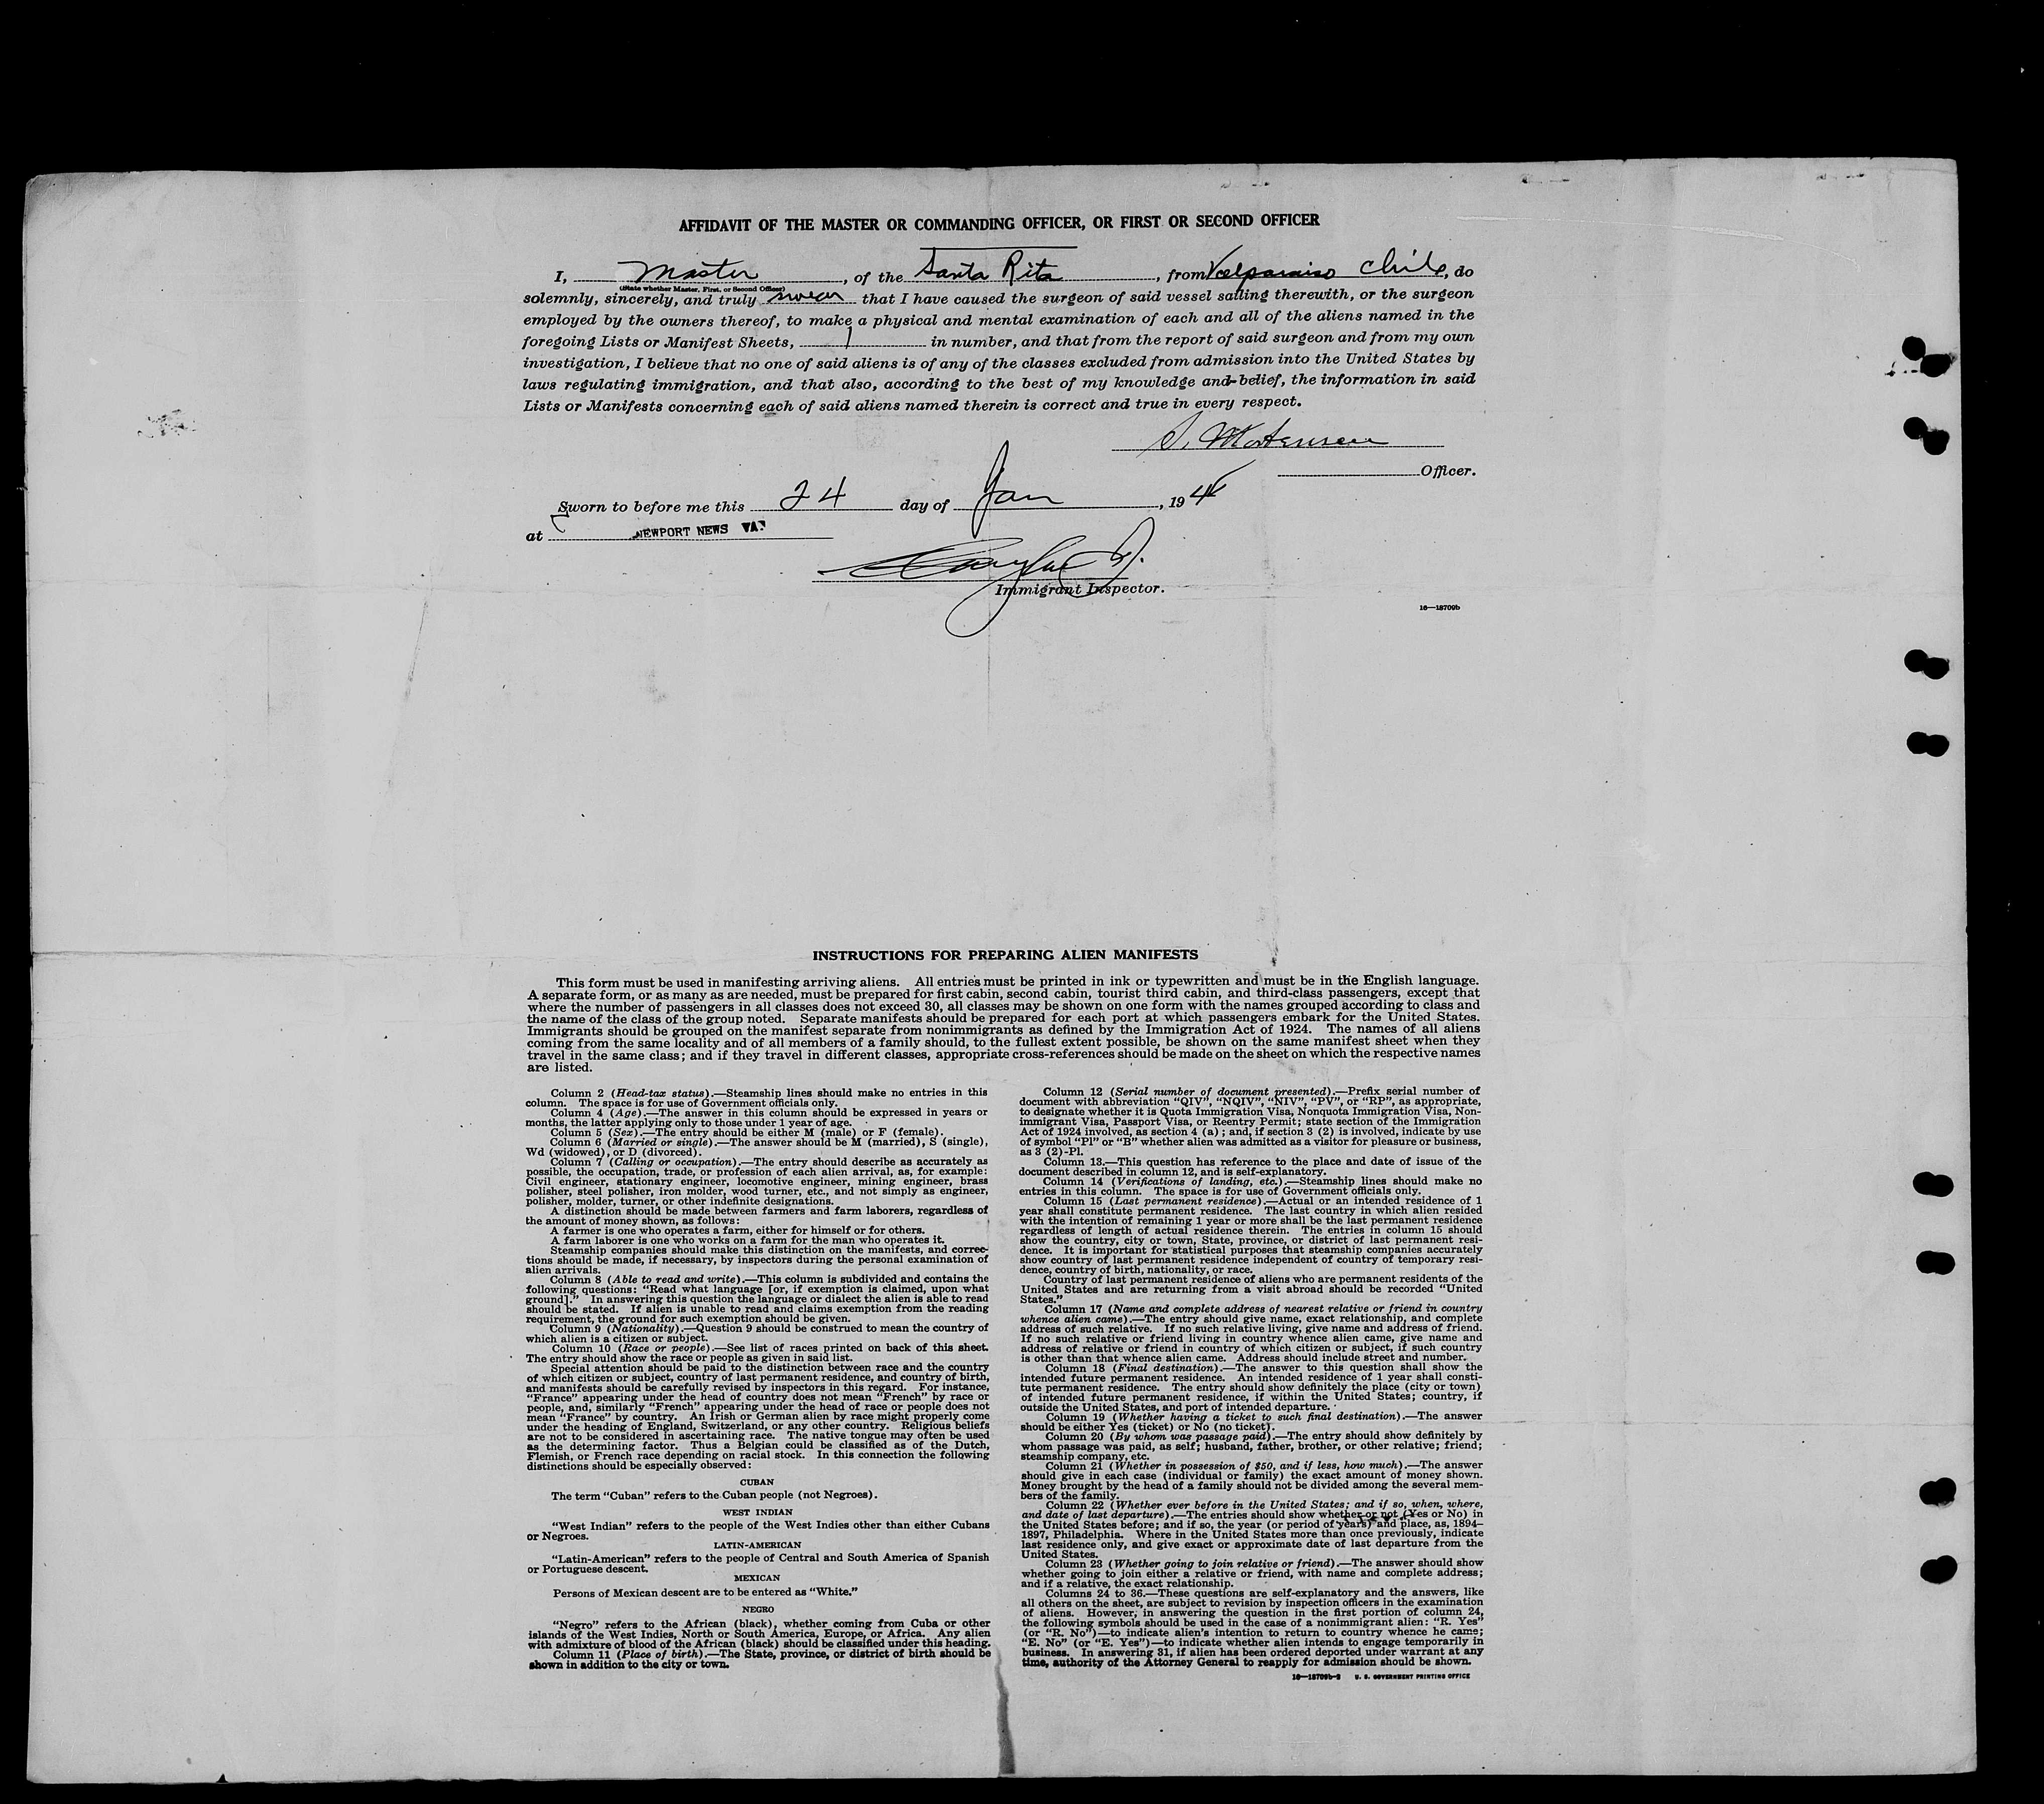 AFFIDAVIT OF THE MASTER OR COMMANDING OFFICER, OR FIRST OR SECOND OFFICER
I, Master, of the Santa Rita, from Valparaiso Chile, do
(State whether Master, First, or Second Officer)
solemnly, sincerely, and truly swear that I have caused the surgeon of said vessel sailing therewith, or the surgeon
employed by the owners thereof, to make a physical and mental examination of each and all of the aliens named in the
foregoing Lists or Manifest Sheets, 1 in number, and that from the report of said surgeon and from my own
investigation, I believe that no one of said aliens is of any of the classes excluded from admission into the United States by
laws regulating immigration, and that also, according to the best of my knowledge and belief, the information in said
Lists or Manifests concerning each of said aliens named therein is correct and true in every respect.
S. Mortensen
Officer.
Sworn to before me this 24 day of Jan, 194
at NEWPORT NEWS VA.
Immigrant Inspector.
16—18709b
INSTRUCTIONS FOR PREPARING ALIEN MANIFESTS
This form must be used in manifesting arriving aliens. All entries must be printed in ink or typewritten and must be in the English language.
A separate form, or as many as are needed, must be prepared for first cabin, second cabin, tourist third cabin, and third-class passengers, except that
where the number of passengers in all classes does not exceed 30, all classes may be shown on one form with the names grouped according to class and
the name of the class of the group noted. Separate manifests should be prepared for each port at which passengers embark for the United States.
Immigrants should be grouped on the manifest separate from nonimmigrants as defined by the Immigration Act of 1924. The names of all aliens
coming from the same locality and of all members of a family should, to the fullest extent possible, be shown on the same manifest sheet when they
travel in the same class; and if they travel in different classes, appropriate cross-references should be made on the sheet on which the respective names
are listed.
Column 2 (Head-tax status).—Steamship lines should make no entries in this
column. The space is for use of Government officials only.
Column 4 (Age).—The answer in this column should be expressed in years or
months, the latter applying only to those under 1 year of age.
Column 5 (Sex).—The entry should be either M (male) or F (female).
Column 6 (Married or single).—The answer should be M (married), S (single),
Wd (widowed), or D (divorced).
Column 7 (Calling or occupation).—The entry should describe as accurately as
possible, the occupation, trade, or profession of each alien arrival, as, for example:
Civil engineer, stationary engineer, locomotive engineer, mining engineer, brass
polisher, steel polisher, iron molder, wood turner, etc., and not simply as engineer,
polisher, molder, turner, or other indefinite designations.
A distinction should be made between farmers and farm laborers, regardless of
the amount of money shown, as follows:
A farmer is one who operates a farm, either for himself or for others.
A farm laborer is one who works on a farm for the man who operates it.
Steamship companies should make this distinction on the manifests, and correc-
tions should be made, if necessary, by inspectors during the personal examination of
alien arrivals.
Column 8 (Able to read and write).—This column is subdivided and contains the
following questions: "Read what language [or, if exemption is claimed, upon what
ground]." In answering this question the language or dialect the alien is able to read
should be stated. If alien is unable to read and claims exemption from the reading
requirement, the ground for such exemption should be given.
Column 9 (Nationality).—Question 9 should be construed to mean the country of
which alien is a citizen or subject.
Column 10 (Race or people).—See list of races printed on back of this sheet.
The entry should show the race or people as given in said list.
Special attention should be paid to the distinction between race and the country
of which citizen or subject, country of last permanent residence, and country of birth,
and manifests should be carefully revised by inspectors in this regard. For instance,
"France" appearing under the head of country does not mean "French" by race or
people, and, similarly "French" appearing under the head of race or people does not
mean "France" by country. An Irish or German alien by race might properly come
under the heading of England, Switzerland, or any other country. Religious beliefs
are not to be considered in ascertaining race. The native tongue may often be used
as the determining factor. Thus a Belgian could be classified as of the Dutch,
Flemish, or French race depending on racial stock. In this connection the following
distinctions should be especially observed:
CUBAN
The term "Cuban" refers to the Cuban people (not Negroes).
WEST INDIAN
"West Indian" refers to the people of the West Indies other than either Cubans
or Negroes.
LATIN-AMERICAN
"Latin-American" refers to the people of Central and South America of Spanish
or Portuguese descent.
MEXICAN
Persons of Mexican descent are to be entered as "White."
NEGRO
"Negro" refers to the African (black), whether coming from Cuba or other
islands of the West Indies, North or South America, Europe, or Africa. Any alien
with admixture of blood of the African (black) should be classified under this heading.
Column 11 (Place of birth).—The State, province, or district of birth should be
shown in addition to the city or town.
Column 12 (Serial number of document presented).—Prefix serial number of
document with abbreviation "QIV", "NQIV", "NIV", "PV", or "RP", as appropriate,
to designate whether it is Quota Immigration Visa, Nonquota Immigration Visa, Non-
immigrant Visa, Passport Visa, or Reentry Permit; state section of the Immigration
Act of 1924 involved, as section 4 (a); and, if section 3 (2) is involved, indicate by use
of symbol "Pl" or "B" whether alien was admitted as a visitor for pleasure or business,
as 3 (2)-Pl.
Column 13.—This question has reference to the place and date of issue of the
document described in column 12, and is self-explanatory.
Column 14 (Verifications of landing, etc.).—Steamship lines should make no
entries in this column. The space is for use of Government officials only.
Column 15 (Last permanent residence).—Actual or an intended residence of 1
year shall constitute permanent residence. The last country in which alien resided
with the intention of remaining 1 year or more shall be the last permanent residence
regardless of length of actual residence therein. The entries in column 15 should
show the country, city or town, State, province, or district of last permanent resi-
dence. It is important for statistical purposes that steamship companies accurately
show country of last permanent residence independent of country of temporary resi-
dence, country of birth, nationality, or race.
Country of last permanent residence of aliens who are permanent residents of the
United States and are returning from a visit abroad should be recorded "United
States."
Column 17 (Name and complete address of nearest relative or friend in country
whence alien came).—The entry should give name, exact relationship, and complete
address of such relative. If no such relative living, give name and address of friend.
If no such relative or friend living in country whence alien came, give name and
address of relative or friend in country of which citizen or subject, if such country
is other than that whence alien came. Address should include street and number.
Column 18 (Final destination).—The answer to this question shall show the
intended future permanent residence. An intended residence of 1 year shall consti-
tute permanent residence. The entry should show definitely the place (city or town)
of intended future permanent residence, if within the United States; country, if
outside the United States, and port of intended departure.
Column 19 (Whether having a ticket to such final destination).—The answer
should be either Yes (ticket) or No (no ticket).
Column 20 (By whom was passage paid).—The entry should show definitely by
whom passage was paid, as self; husband, father, brother, or other relative; friend;
steamship company, etc.
Column 21 (Whether in possession of $50, and if less, how much).—The answer
should give in each case (individual or family) the exact amount of money shown.
Money brought by the head of a family should not be divided among the several mem-
bers of the family.
Column 22 (Whether ever before in the United States; and if so, when, where,
and date of last departure).—The entries should show whether or not (Yes or No) in
the United States before; and if so, the year (or period of years) and place, as, 1894–
1897, Philadelphia. Where in the United States more than once previously, indicate
last residence only, and give exact or approximate date of last departure from the
United States.
Column 23 (Whether going to join relative or friend).—The answer should show
whether going to join either a relative or friend, with name and complete address;
and if a relative, the exact relationship.
Columns 24 to 36.—These questions are self-explanatory and the answers, like
all others on the sheet, are subject to revision by inspection officers in the examination
of aliens. However, in answering the question in the first portion of column 24,
the following symbols should be used in the case of a nonimmigrant alien: "R. Yes"
(or "R. No")—to indicate alien's intention to return to country whence he came;
"E. No" (or "E. Yes")—to indicate whether alien intends to engage temporarily in
business. In answering 31, if alien has been ordered deported under warrant at any
time, authority of the Attorney General to reapply for admission should be shown.
16—18709b-2 U. S. GOVERNMENT PRINTING OFFICE